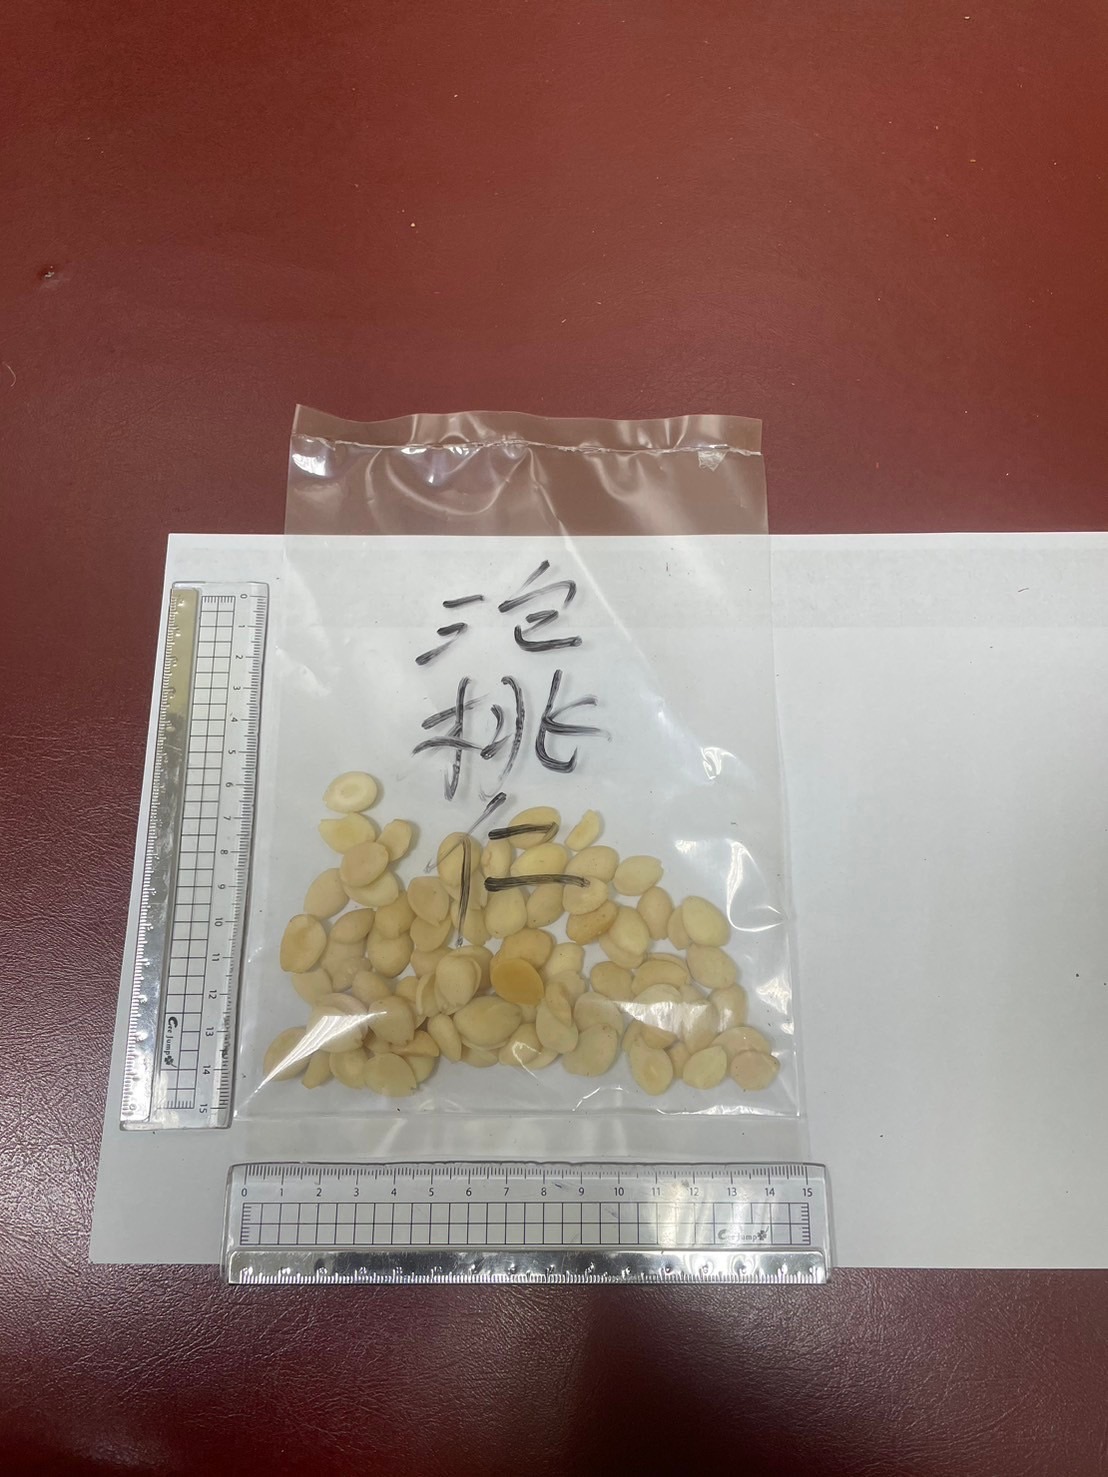 泡
桃
仁
0 1 2 3 4 5 6 7 8 9 10 11 12 13 14 15
Cre Jump
0 1 2 3 4 5 6 7 8 9 10 11 12 13 14 15
Cre Jump